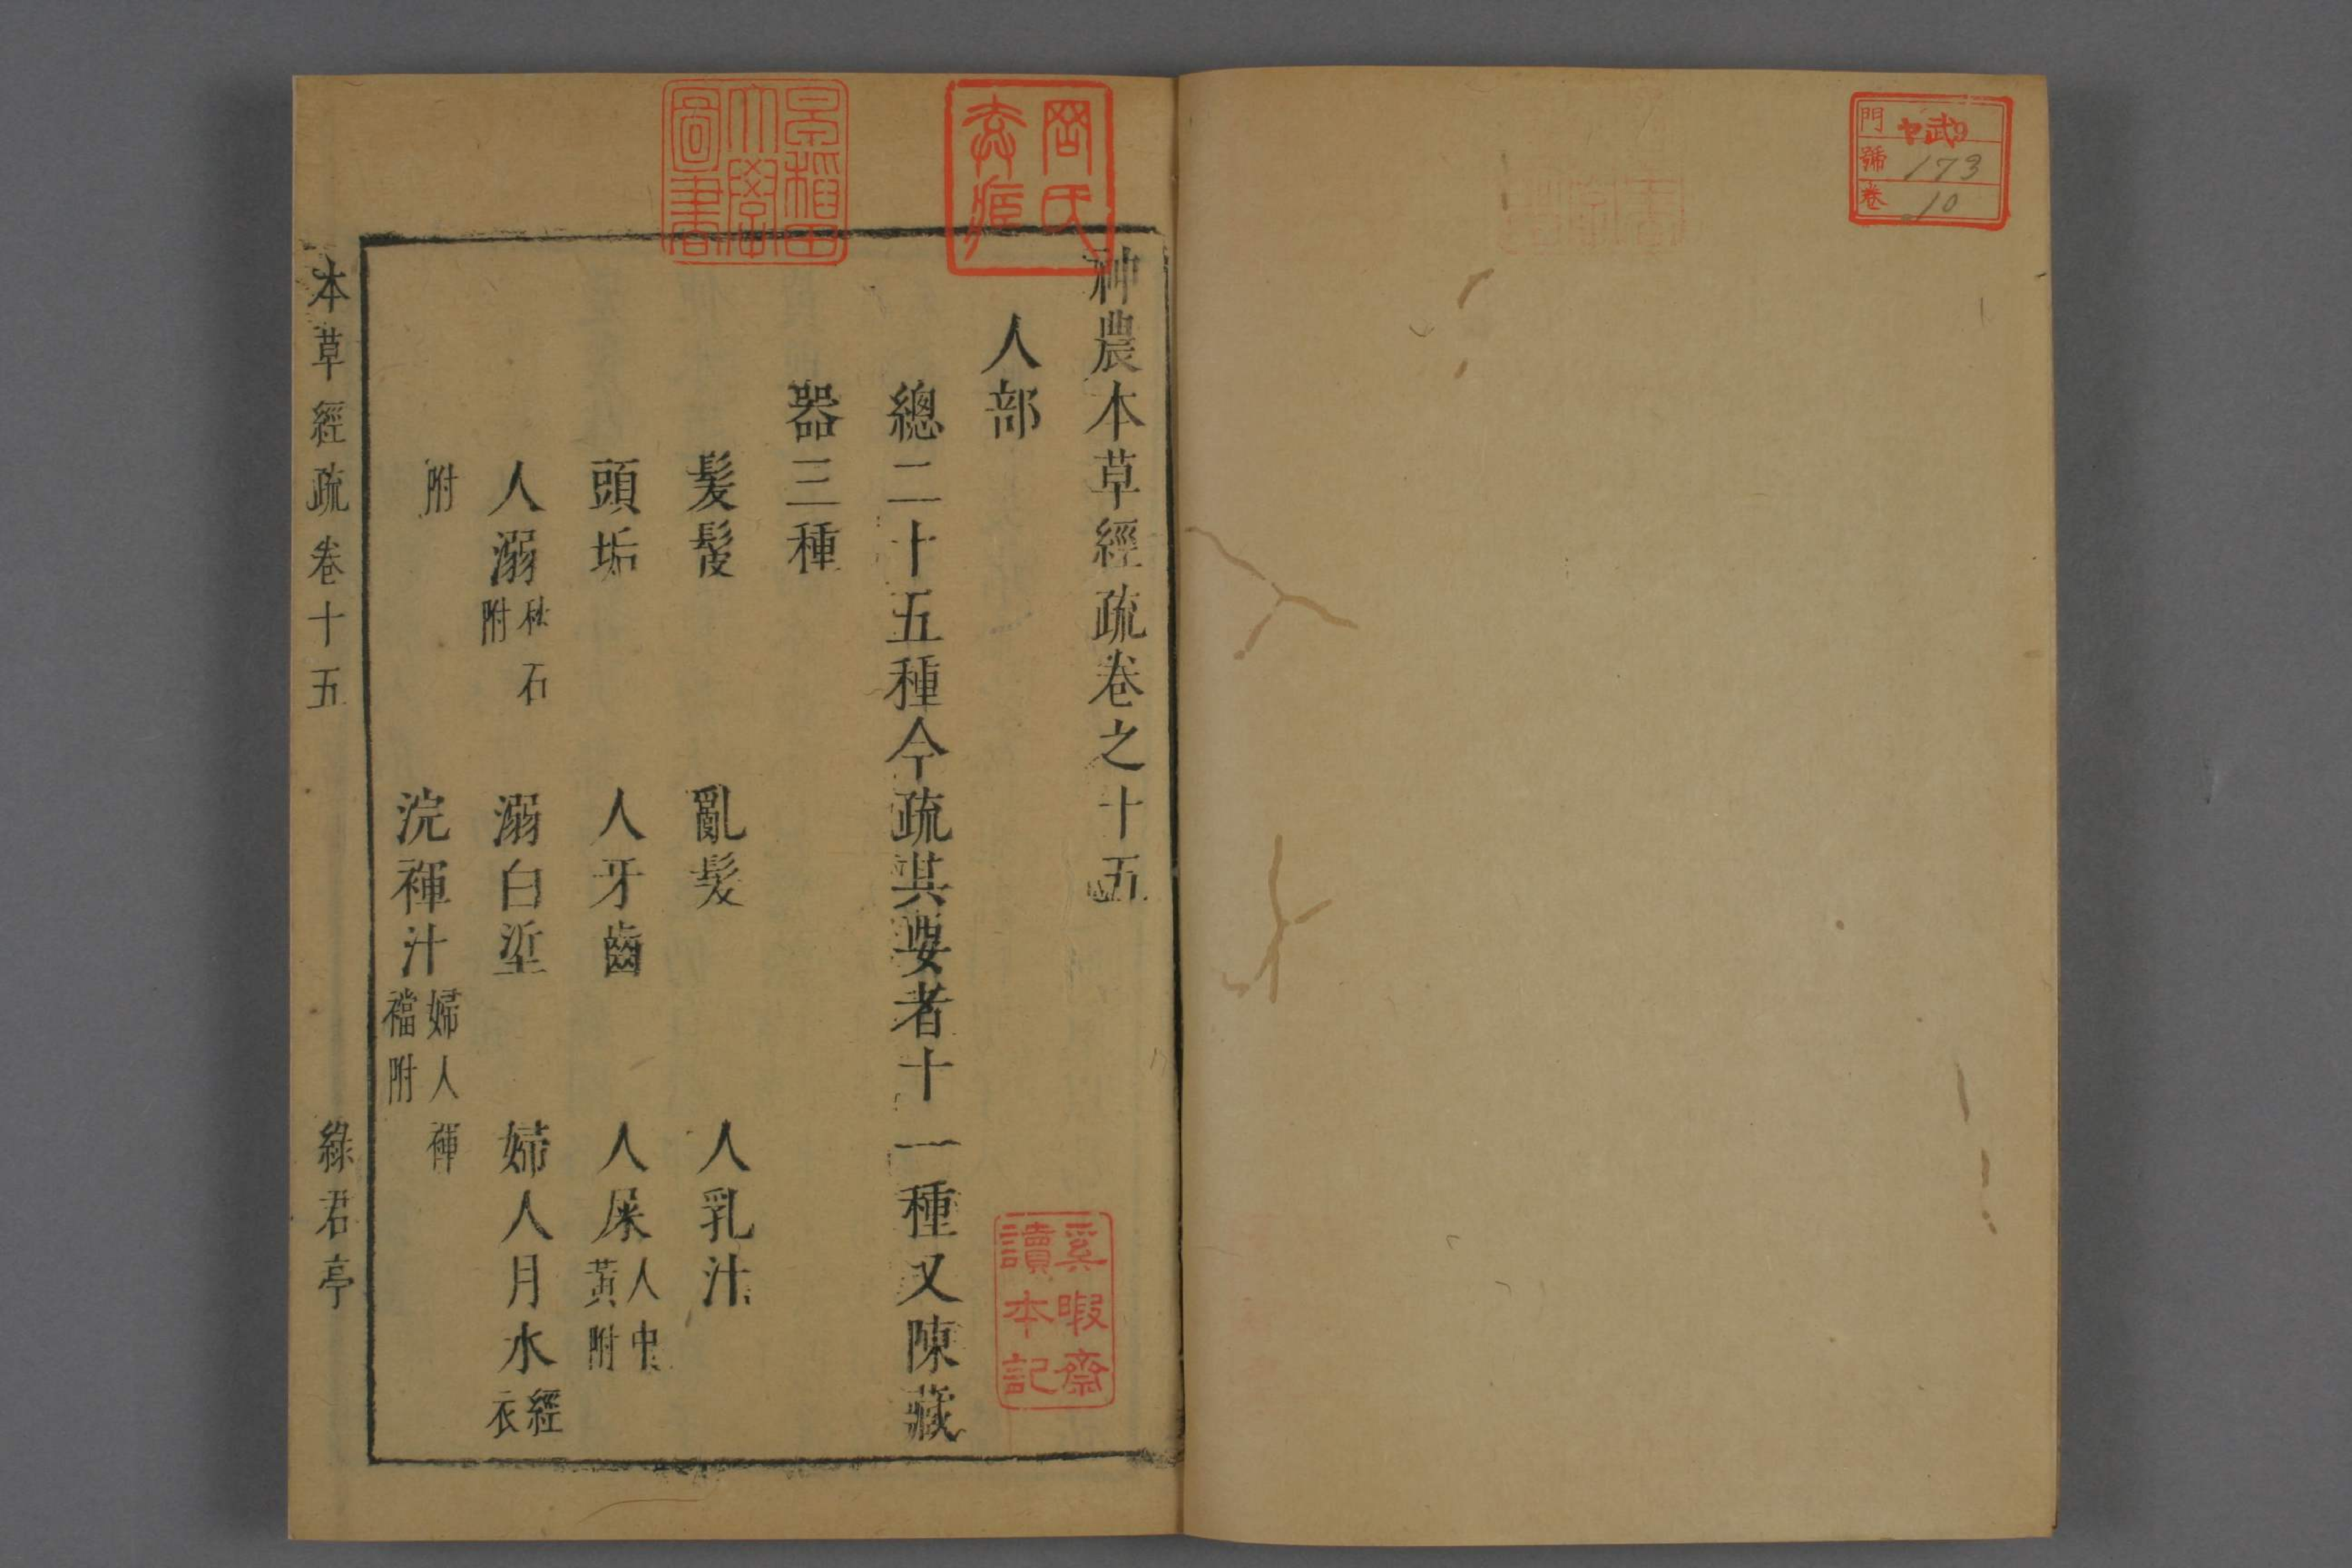 門 ヤ武9
號 173
卷 10
神農本草經疏卷之十五
人部
總二十五種今疏其要者十一種又陳藏
器三種
髮髲 亂髮 人乳汁
頭垢 人牙齒 人屎人中黃附
人溺秋石附 溺白垽 婦人月水經衣
附 浣褌汁婦人褌襠附
本草經疏卷十五 綠君亭
早稲田大學圖書
奚暇齋讀本記